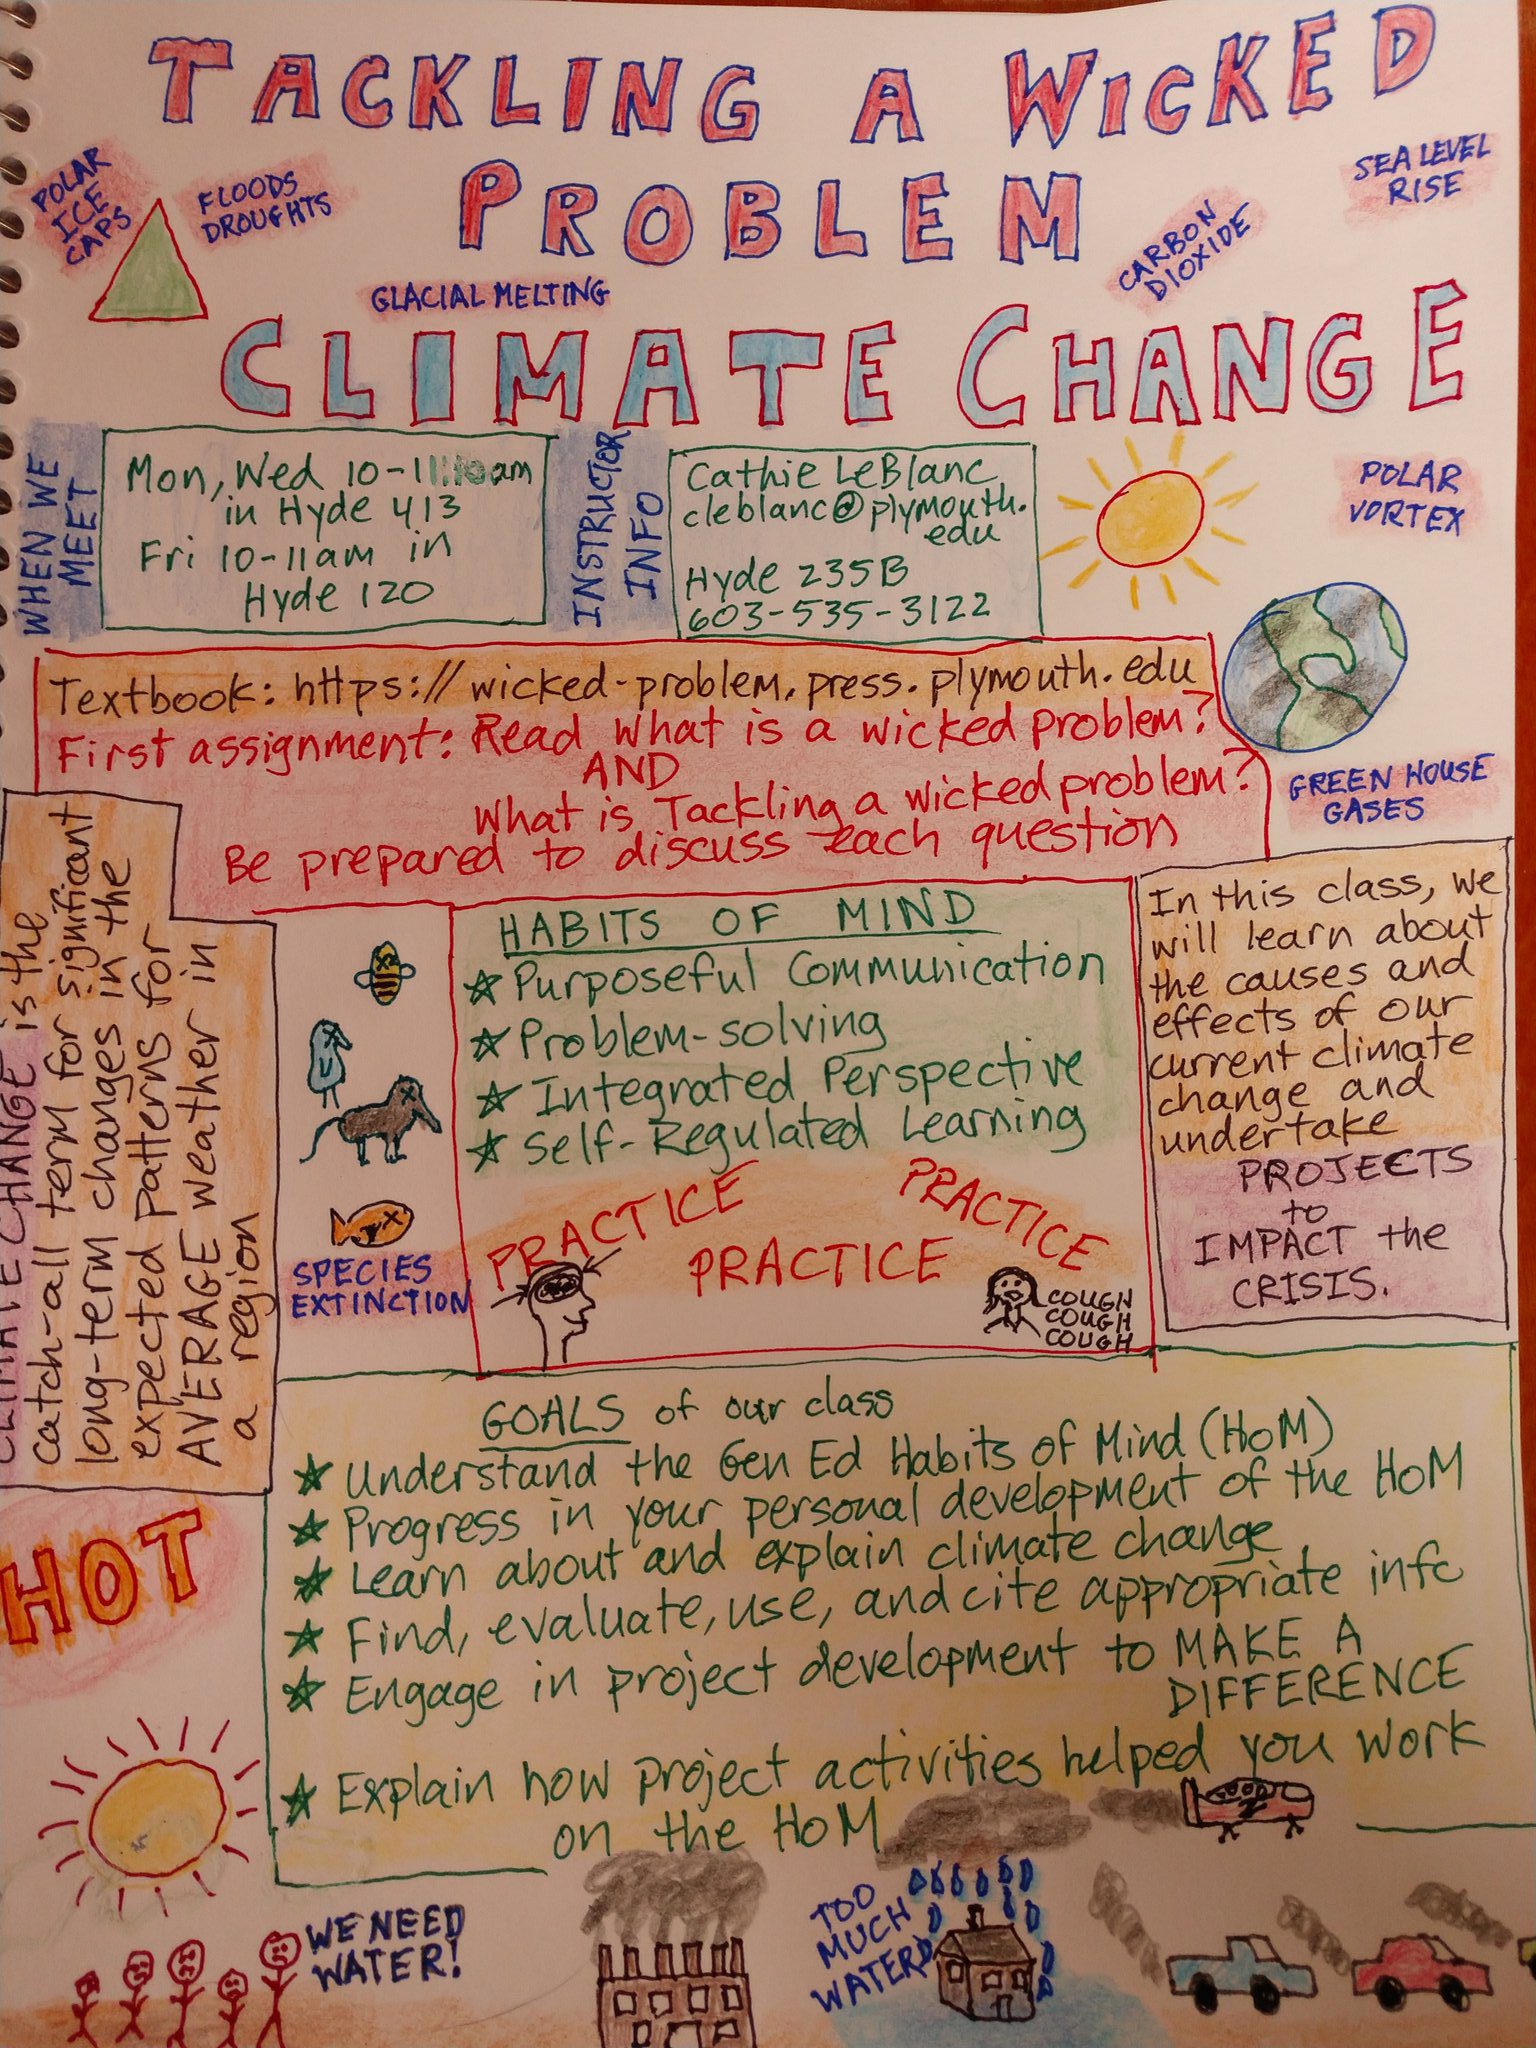 TACKLING A WICKED
PROBLEM
POLAR
ICE
CAPS
FLOODS
DROUGHTS
GLACIAL MELTING
CARBON
DIOXIDE
SEA LEVEL
RISE
CLIMATE CHANGE
WHEN WE
MEET
Mon, Wed 10-11:10am
in Hyde 413
Fri 10-11am in
Hyde 120
INSTRUCTOR
INFO
Cathie LeBlanc
cleblanc@plymouth.
edu
Hyde 235B
603-535-3122
POLAR
VORTEX
Textbook: https://wicked-problem.press.plymouth.edu
First assignment: Read What is a wicked problem?
AND
What is Tackling a wicked problem?
Be prepared to discuss each question
GREEN HOUSE
GASES
CLIMATE CHANGE is the
catch-all term for significant
long-term changes in the
expected patterns for
AVERAGE weather in
a region
SPECIES
EXTINCTION
HABITS OF MIND
Purposeful Communication
Problem-solving
Integrated Perspective
Self-Regulated Learning
PRACTICE
PRACTICE
PRACTICE
COUGH
COUGH
COUGH
In this class, we
will learn about
the causes and
effects of our
current climate
change and
undertake
PROJECTS
to
IMPACT the
CRISIS.
GOALS of our class
Understand the Gen Ed Habits of Mind (HoM)
Progress in your personal development of the HoM
Learn about and explain climate change
Find, evaluate, use, and cite appropriate info
Engage in project development to MAKE A
DIFFERENCE
Explain how project activities helped you work
on the HoM
HOT
WE NEED
WATER!
TOO
MUCH
WATER